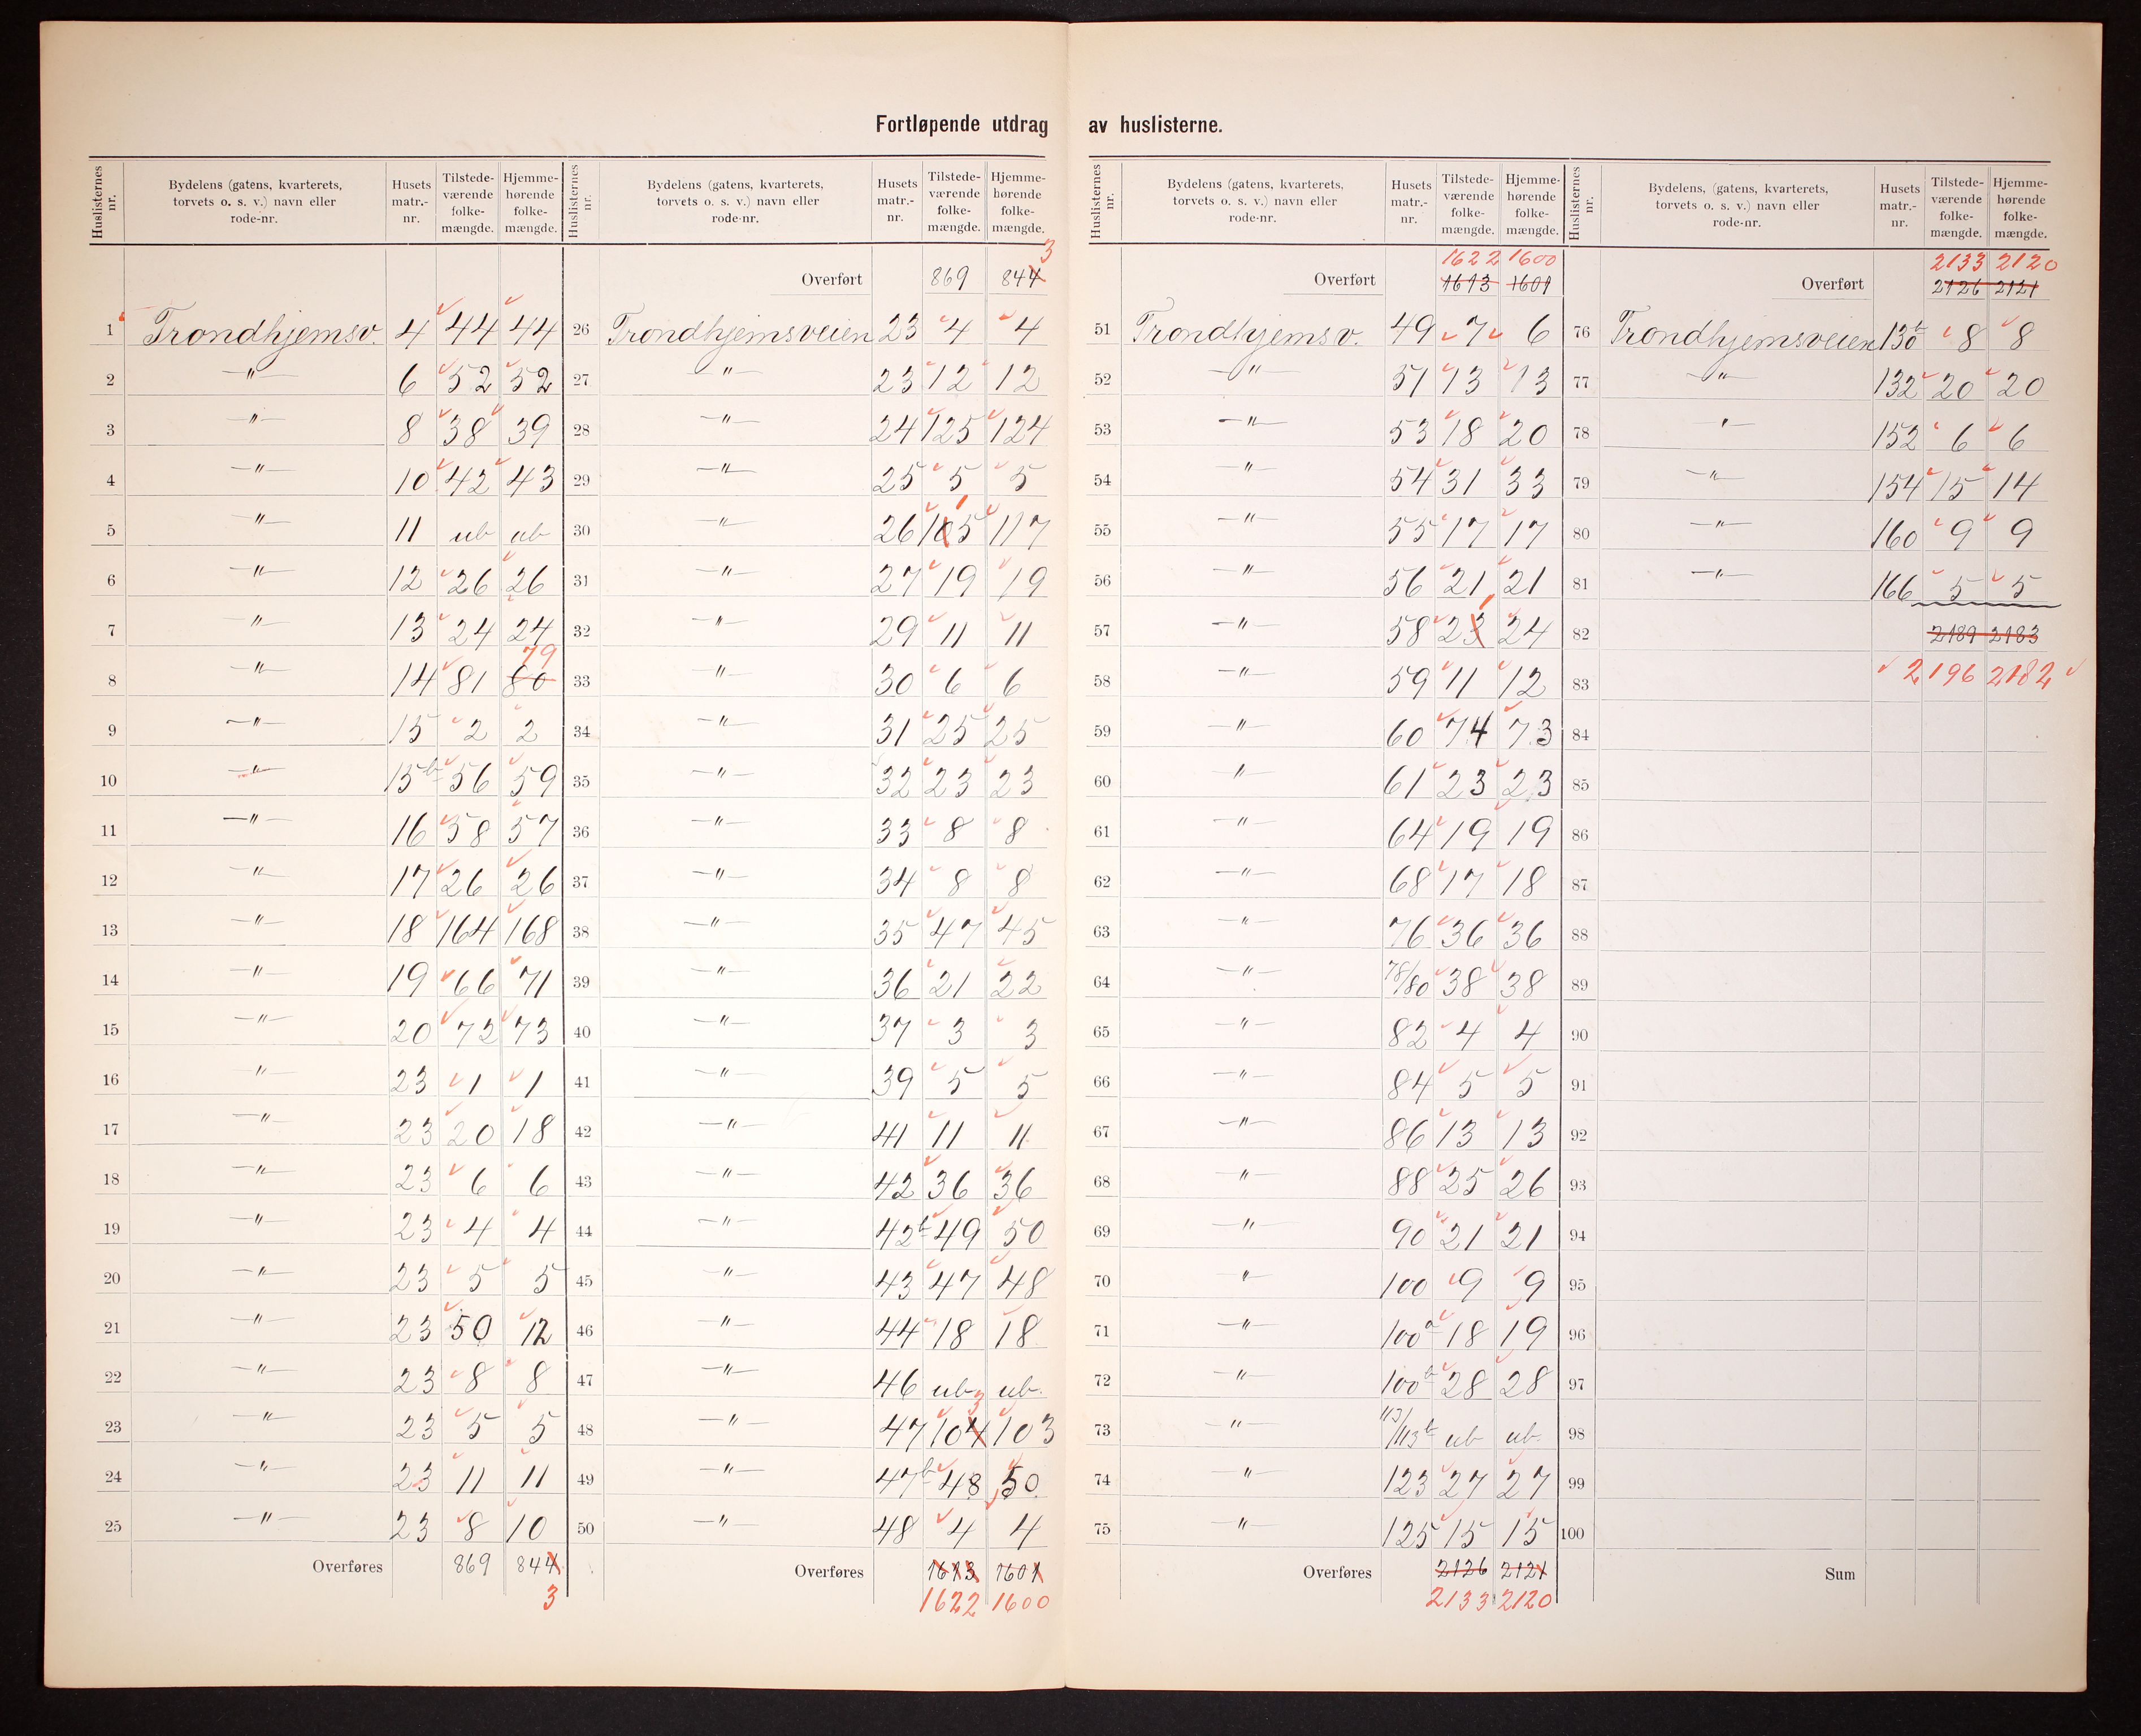 Fortløpende utdrag av huslisterne.
Huslisternes nr. | Bydelens (gatens, kvarterets, torvets o. s. v.) navn eller rode-nr. | Husets matr.-nr. | Tilstede-værende folke-mængde. | Hjemme-hørende folke-mængde.
1 Trondhjemsv. 4 44 44
2 —"— 6 52 52
3 —"— 8 38 39
4 —"— 10 42 43
5 —"— 11 ub ub
6 —"— 12 26 26
7 —"— 13 24 24
8 —"— 14 81 80 79
9 —"— 15 2 2
10 —"— 15b 56 59
11 —"— 16 58 57
12 —"— 17 26 26
13 —"— 18 164 168
14 —"— 19 66 71
15 —"— 20 72 73
16 —"— 23 1 1
17 —"— 23 20 18
18 —"— 23 6 6
19 —"— 23 4 4
20 —"— 23 5 5
21 —"— 23 50 12
22 —"— 23 8 8
23 —"— 23 5 5
24 —"— 23 11 11
25 —"— 23 8 10
Overføres 869 844
3
Huslisternes nr. | Bydelens (gatens, kvarterets, torvets o. s. v.) navn eller rode-nr. | Husets matr.-nr. | Tilstede-værende folke-mængde. | Hjemme-hørende folke-mængde.
3
Overført 869 844
26 Trondhjemsveien 23 4 4
27 —"— 23 12 12
28 —"— 24 125 124
29 —"— 25 5 5
30 —"— 26 105 1 117
31 —"— 27 19 19
32 —"— 29 11 11
33 —"— 30 6 6
34 —"— 31 25 25
35 —"— 32 23 23
36 —"— 33 8 8
37 —"— 34 8 8
38 —"— 35 47 45
39 —"— 36 21 22
40 —"— 37 3 3
41 —"— 39 5 5
42 —"— 41 11 11
43 —"— 42 36 36
44 —"— 42b 49 50
45 —"— 43 47 48
46 —"— 44 18 18
47 —"— 46 ub ub.
48 —"— 47 104 3 103
49 —"— 47b 48 50
50 —"— 48 4 4
Overføres 1613 1601
1622 1600
Huslisternes nr. | Bydelens (gatens, kvarterets, torvets o. s. v.) navn eller rode-nr. | Husets matr.-nr. | Tilstede-værende folke-mængde. | Hjemme-hørende folke-mængde.
1622 1600
Overført 1613 1601
51 Trondhjemsv. 49 7 6
52 —"— 51 13 13
53 —"— 53 18 20
54 —"— 54 31 33
55 —"— 55 17 17
56 —"— 56 21 21
57 —"— 58 23 1 24
58 —"— 59 11 12
59 —"— 60 74 73
60 —"— 61 23 23
61 —"— 64 19 19
62 —"— 68 17 18
63 —"— 76 36 36
64 —"— 78/80 38 38
65 —"— 82 4 4
66 —"— 84 5 5
67 —"— 86 13 13
68 —"— 88 25 26
69 —"— 90 21 21
70 —"— 100 9 9
71 —"— 100a 18 19
72 —"— 100b 28 28
73 —"— 113/113b ub ub.
74 —"— 123 27 27
75 —"— 125 15 15
Overføres 2126 2121
2133 2120
Huslisternes nr. | Bydelens, (gatens, kvarterets, torvets o. s. v.) navn eller rode-nr. | Husets matr.-nr. | Tilstede-værende folke-mængde. | Hjemme-hørende folke-mængde.
2133 2120
Overført 2126 2121
76 Trondhjemsveien 130b 8 8
77 —"— 132 20 20
78 —"— 152 6 6
79 —"— 154 15 14
80 —"— 160 9 9
81 —"— 166 5 5
82 2189 2183
83 2196 2182
84
85
86
87
88
89
90
91
92
93
94
95
96
97
98
99
100
Sum